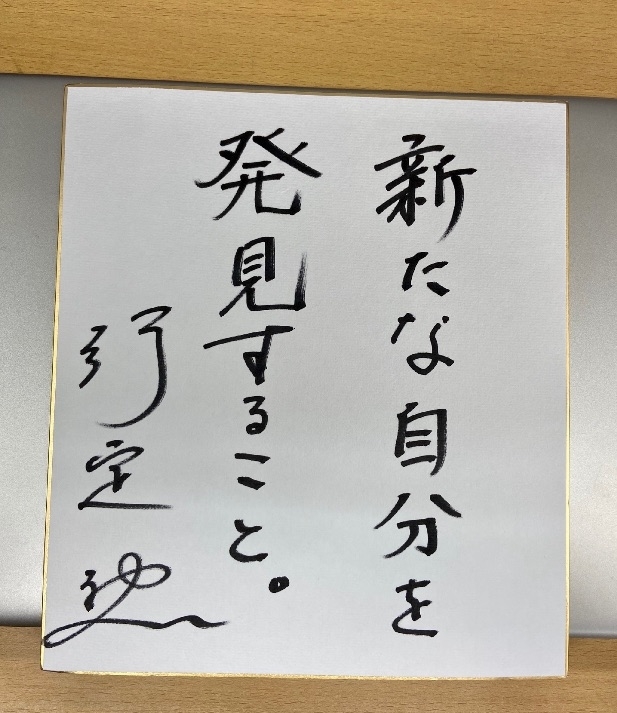 新たな自分を
発見すること。
行定勲